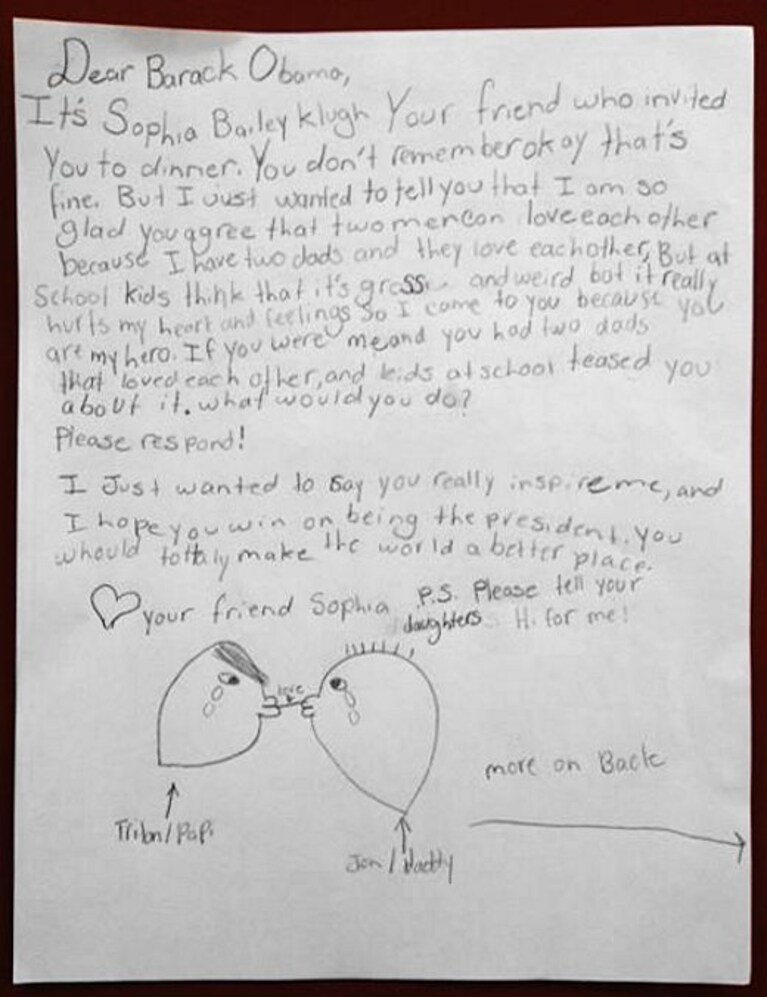 Dear Barack Obama,
It's Sophia Bailey klugh Your friend who invited
You to dinner. You don't remember okay that's
fine. But I Just wanted to tell you that I am so
glad you agree that two men can love each other
because I have two dads and they love each other, But at
School kids think that it's gross and weird but it really
hurts my heart and feelings So I come to you because you
are my hero. If you were me and you had two dads
that loved each other, and kids at school teased you
about it. what would you do?
Please respond!
I Just wanted to say you really inspire me, and
I hope you win on being the president. you
whould tottaly make the world a better place.
your friend Sophia
P.S. Please tell your
daughters Hi for me!
love
more on Back
Papi
Jon / Daddy